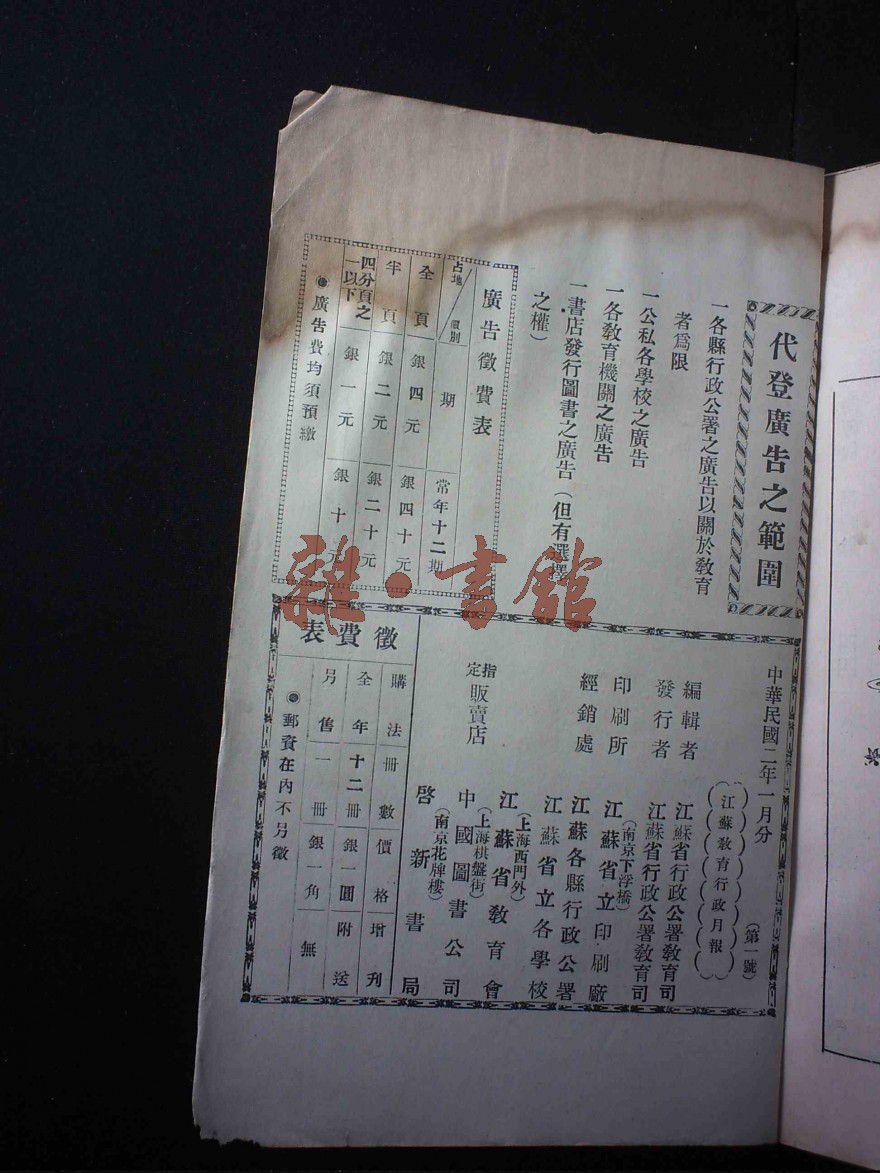 代登廣告之範圍
一各縣行政公署之廣告以關於教育
者爲限
一公私各學校之廣告
一各教育機關之廣告
一書店發行圖書之廣告（但有選擇
之權）
廣告徵費表
占地 期 常年十二期
全頁 銀四元 銀四十元
半頁 銀二元 銀二十元
四分頁之一以下 銀一元 銀十元
◉廣告費均須預繳
中華民國二年一月分
江蘇教育行政月報
（第一號）
編輯者 江蘇省行政公署教育司
發行者 江蘇省行政公署教育司
（南京下浮橋）
印刷所 江蘇省立印刷廠
經銷處 江蘇各縣行政公署
江蘇省立各學校
（上海西門外）
指定販賣店 江蘇省教育會
（上海棋盤街）
中國圖書公司
（南京花牌樓）
啓新書局
徵費表
購法 冊數 價格 增刊
全年 十二冊 銀一圓 附送
另售 一冊 銀一角 無
◉郵資在內不另徵
雜·書館